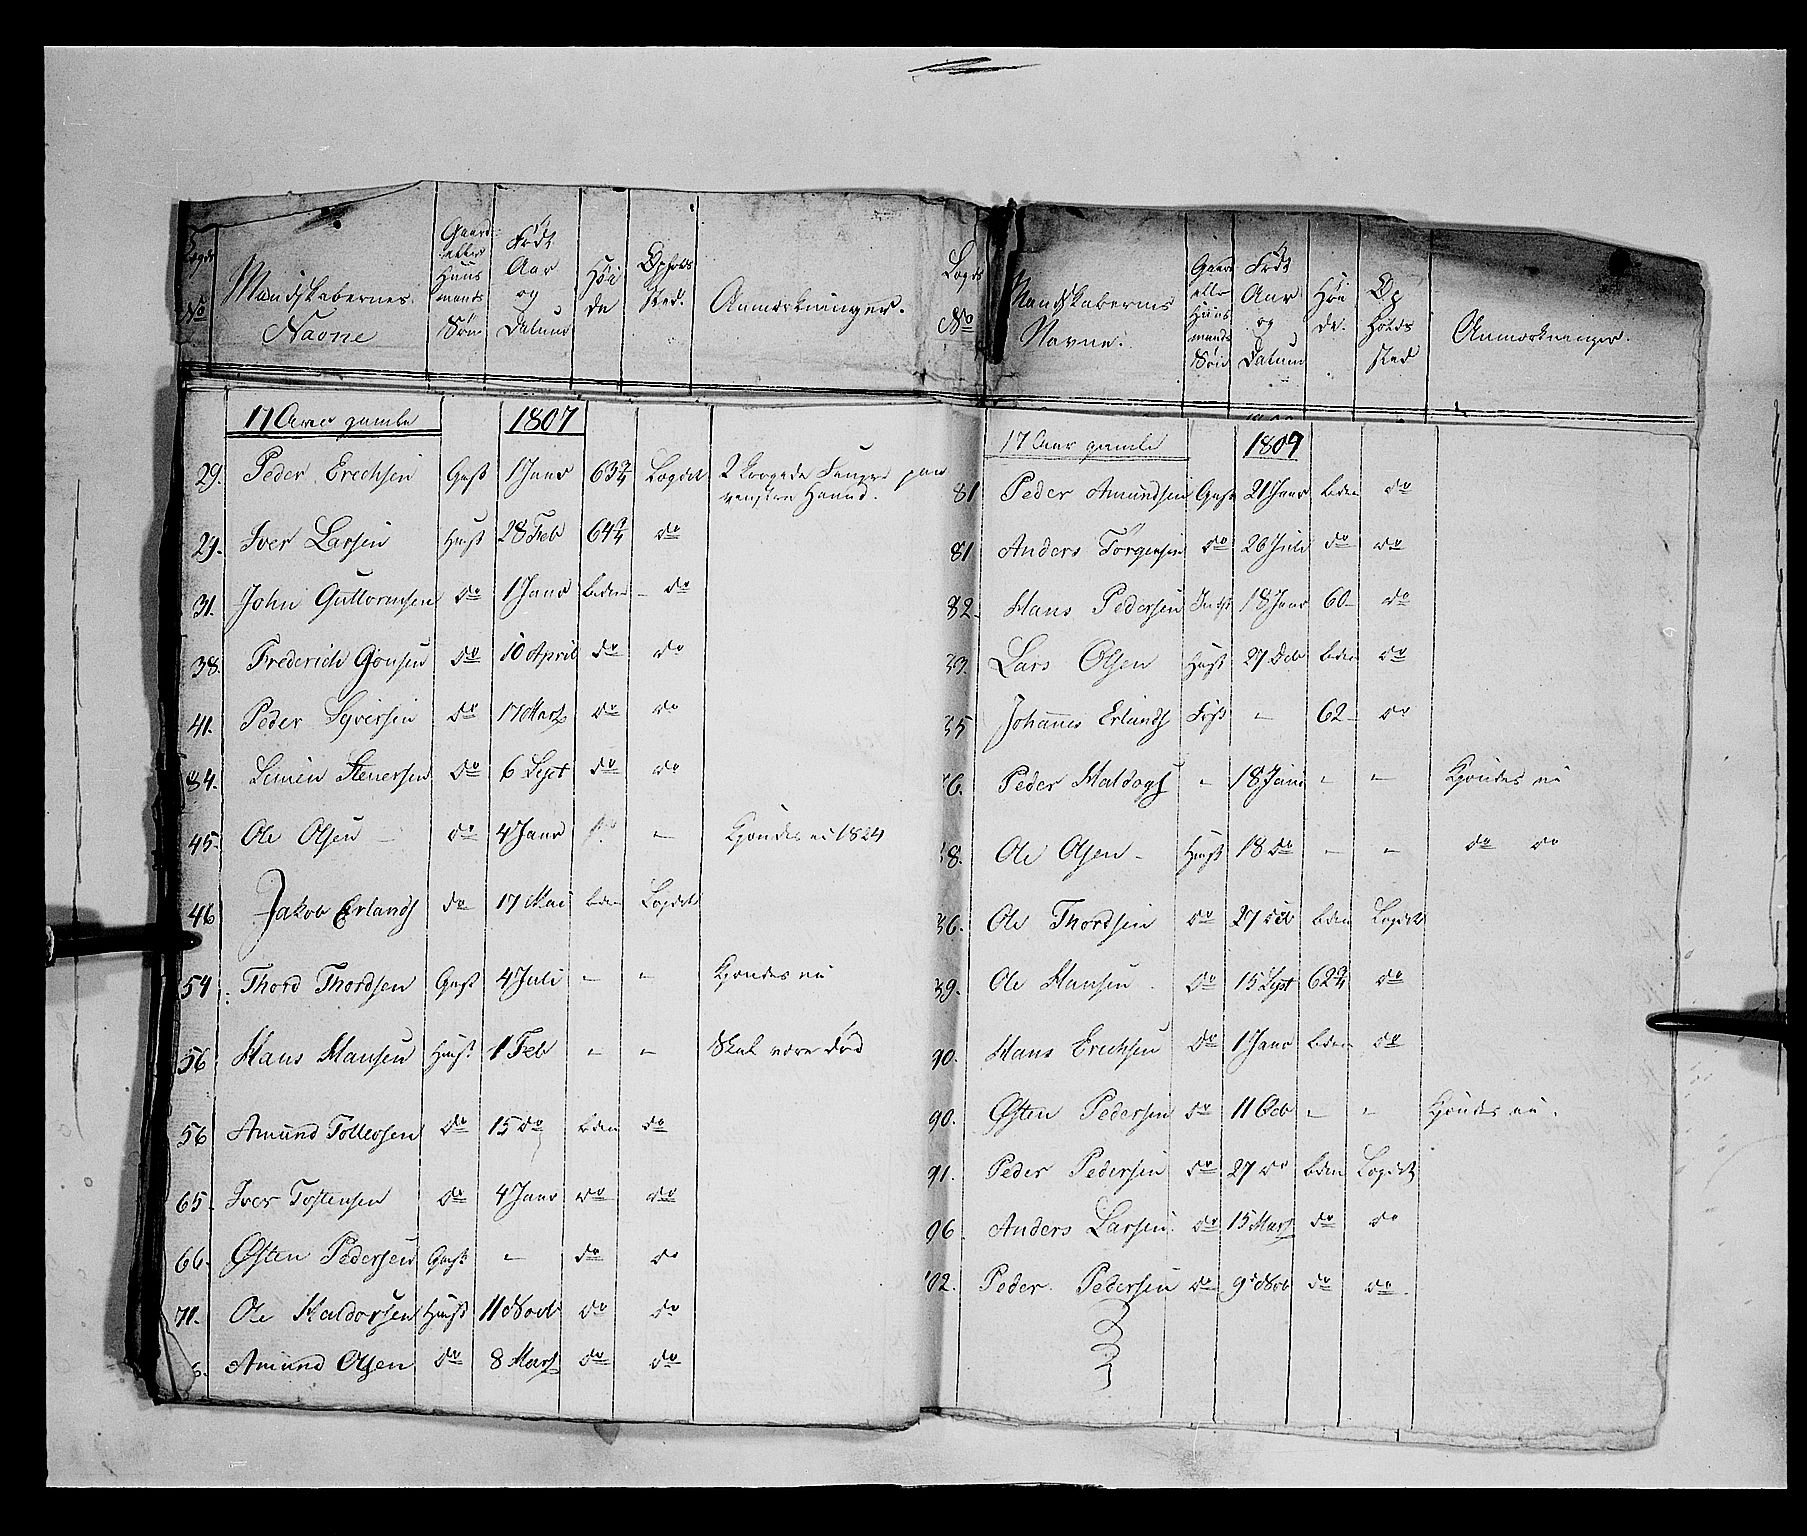 Lægds No
Mandskabernes Navne
Gaard- eller Huus mands Søn
Født Aar og Datum
Høi de
Opholds sted.
Anmærkninger.
17 Aar gamle 1807
29. Peder Erechsen Gms 1 Janr 63¾ Lægdet 2 Fingre paa
venstre Haand.
29. Iver Larsen Hms 28 Feb 64¾ do
31. John Guttormsen do 1 Janr uden - do
38. Frederich Gonsen do 10 April do do
41. Peder Syversen do 17 Marts do do
84. Simen Stenersen do 6 Sept do do
45. Ole Olsen - do 4 Janr - Kjendes ei 1824
46 Jakob Erlands do 17 Mai uden Lægdet
54 Thord Thordsen Gms 4 Juli - - Kjendes ei
56 Hans Hansen Hms 1 Feb - - Skal være død
56 Amund Tollevsen do 15 do uden do
65. Iver Tostensen do 4 Janr do do
66. Østen Pedersen Gms - do do
71. Ole Haldorsen Hms 11 Novb do do
Amund Olsen do 8 Marts do do
Lægds No
Mandskabernes Navne.
Gaard eller Huus mands Søn
Født Aar og Datum
Høi de.
Op holds sted
Anmærkninger.
17 Aar gamle 1809
81 Peder Amundsen Gms 21 Janr uden do
81 Anders Torgersen do 26 Juli do do
82. Hans Pedersen 18 Janr 60 - do
33. Lars Olsen Hms 27 Deb uden do
35 Johannes Erlands - 62 - do
6. Peder Haldors - 18 Juni - - Kjendes ei
8. Ole Olsen - Hms 18 do - - do do
36. Ole Thordsen do 27 uden Lægdet
39. Ole Hansen do 15 Sept 62¾ do
90. Hans Erichsen do 1 Janr uden do
90. Østen Pedersen do 11 Ocb - - Kjendes ei.
91. Peder Pedersen do 27 do uden Lægdet
96 Anders Larsen do 15 Marts do do
102. Peder Pedersen do 9 Nob do do.